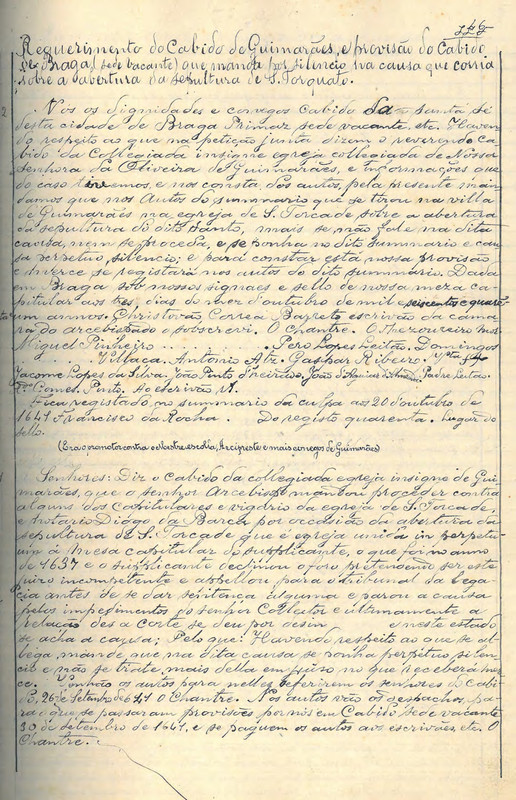 146
Requerimento do Cabido de Guimarães, e provisão do Cabido
de Braga (sede vacante) que manda pôr silencio na causa que corria
sobre a abertura da sepultura de S. Torquato.
Nós os dignidades e conegos Cabido da santa sé
desta cidade de Braga Primaz sede vacante, etc. Haven
do respeito ao que na petição junta dizem o reverendo ca
bido da Collegiada insigne egreja collegiada de Nossa
Senhora da Oliveira de Guimarães, e informações que
do caso tivemos, e nos consta dos autos, pela presente man
damos que nos Autos do summario que se tirou na villa
de Guimarães na egreja de S. Torcade sobre a abertura
da sepultura do dito Santo, mais se não fale na dita
causa, nem se proceda, e se ponha no dito summario e cau
sa perpetuo silencio; e para constar esta nossa provisão
se registará nos autos do dito summario. Dada
em Braga sob nossos signaes e sello de nossa meza ca
pitular aos tres dias do mez d'outubro de mil e seiscentos e quaren
um annos. Christovão Correa Barreto escrivão da cama
ra do arcebispado o sobscrevi. O Chantre. O Thezoureiro mor
Miguel Pinheiro . . . Pero Lopes Leitão. Domingos
Villaca. Antonio Alz. Gaspar Ribeiro.
Jacome Lopes da Silva. João Pinto João Padre Leitao.
Gomes Pinto. Ao escrivão
Fica registado no summario da culpa aos 20 d'outubro de
1641 Francisco da Rocha. Do registo quarenta. Lugar do
sello.
(Era o promotor contra o Mestre escolla, Arcipreste e mais conegos de Guimarães)
Senhores: Diz o Cabido da collegiada egreja insigne de Gui
marães, que o senhor Arcebispo mandou proceder contra
alguns dos Capitulares e vigario da egreja de S. Torcade,
e notario Diogo da Barca por occasião da abertura da
sepultura de S. Torcade que é egreja unida in perpetu
um á Meza capitular do supplicante, o que foi no anno
de 1637 e o supplicante declinou o foro pretendendo ser este
juizo incompetente e appellou para o tribunal da lega
cia antes de se dar sentença alguma e parou a causa
pelos impedimentos do senhor Colleitor e ultimamente a
relação desta corte se deu por e neste estado
se acha a causa; Pelo que: Havendo respeito ao que se al
lega, mande, que na dita causa se ponha perpetuo silen
cio e não se trate mais della em juizo no que receberá mer
ce. Venhão os autos para nelles deferirem os senhores do Cabi
do, 26 de Setembro de 641 O Chantre. Nos autos vão os despachos, pa
ra o que se passaram provisões por nós em Cabido sede vacante
30 de setembro de 1641, e se paguem os autos aos escrivães, etc. O
Chantre.